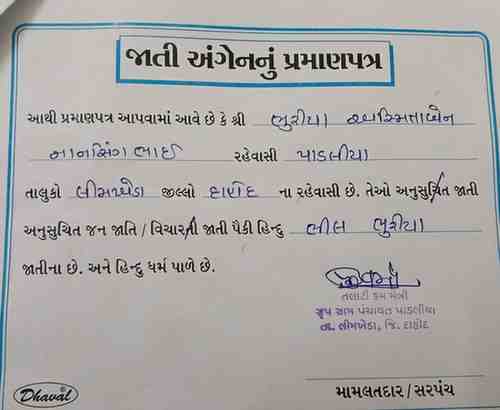 જાતી અંગેનનું પ્રમાણપત્ર
આથી પ્રમાણપત્ર આપવામાં આવે છે કે શ્રી ભુરીયા અસ્મિતાબેન
નાનસિંગ ભાઈ રહેવાસી પાડલીયા
તાલુકો લીમખેડા જીલ્લો દાહોદ ના રહેવાસી છે. તેઓ અનુસુચિત જાતી
અનુસુચિત જન જાતિ / વિચારતી જાતી પૈકી હિન્દુ ભીલ ભુરીયા
જાતીના છે. અને હિન્દુ ધર્મ પાળે છે.
તલાટી કમ મંત્રી
ગ્રુપ ગ્રામ પંચાયત પાડલીયા
તા. લીમખેડા, જિ. દાહોદ
મામલતદાર / સરપંચ
Dhaval